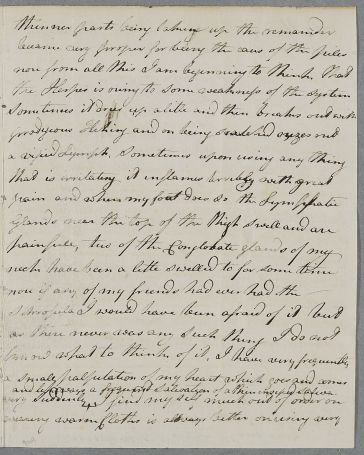 thinner parts being taken up the remainder
became very proper for being the cause of the piles
now from all this I am beginning to think that
the Herpes is owing to some weakness of the system
sometimes it dries up a little and then breaks out with
prodigious itching and on being scratched ouzes out
a viscid Lymph, Sometimes upon using any thing
that is irritating it inflames terribly with great
pain and when my foot does so the Lymphatic
Glands near the top of the thigh swell and are
painful, two of the Conglobate glands of my
neck have been a little swelled to for some time
now if any of my friends had ever had the
Scrofula I would have been afraid of it but
as there never was any such thing I do not
know what to think of it, I have very frequently
a small palpitation of my heart which goes and comes
and very a frequent salivation of a thin insipid saliva
very suddenly, I find my self much out of order on
wearing warm cloths is always better on using very